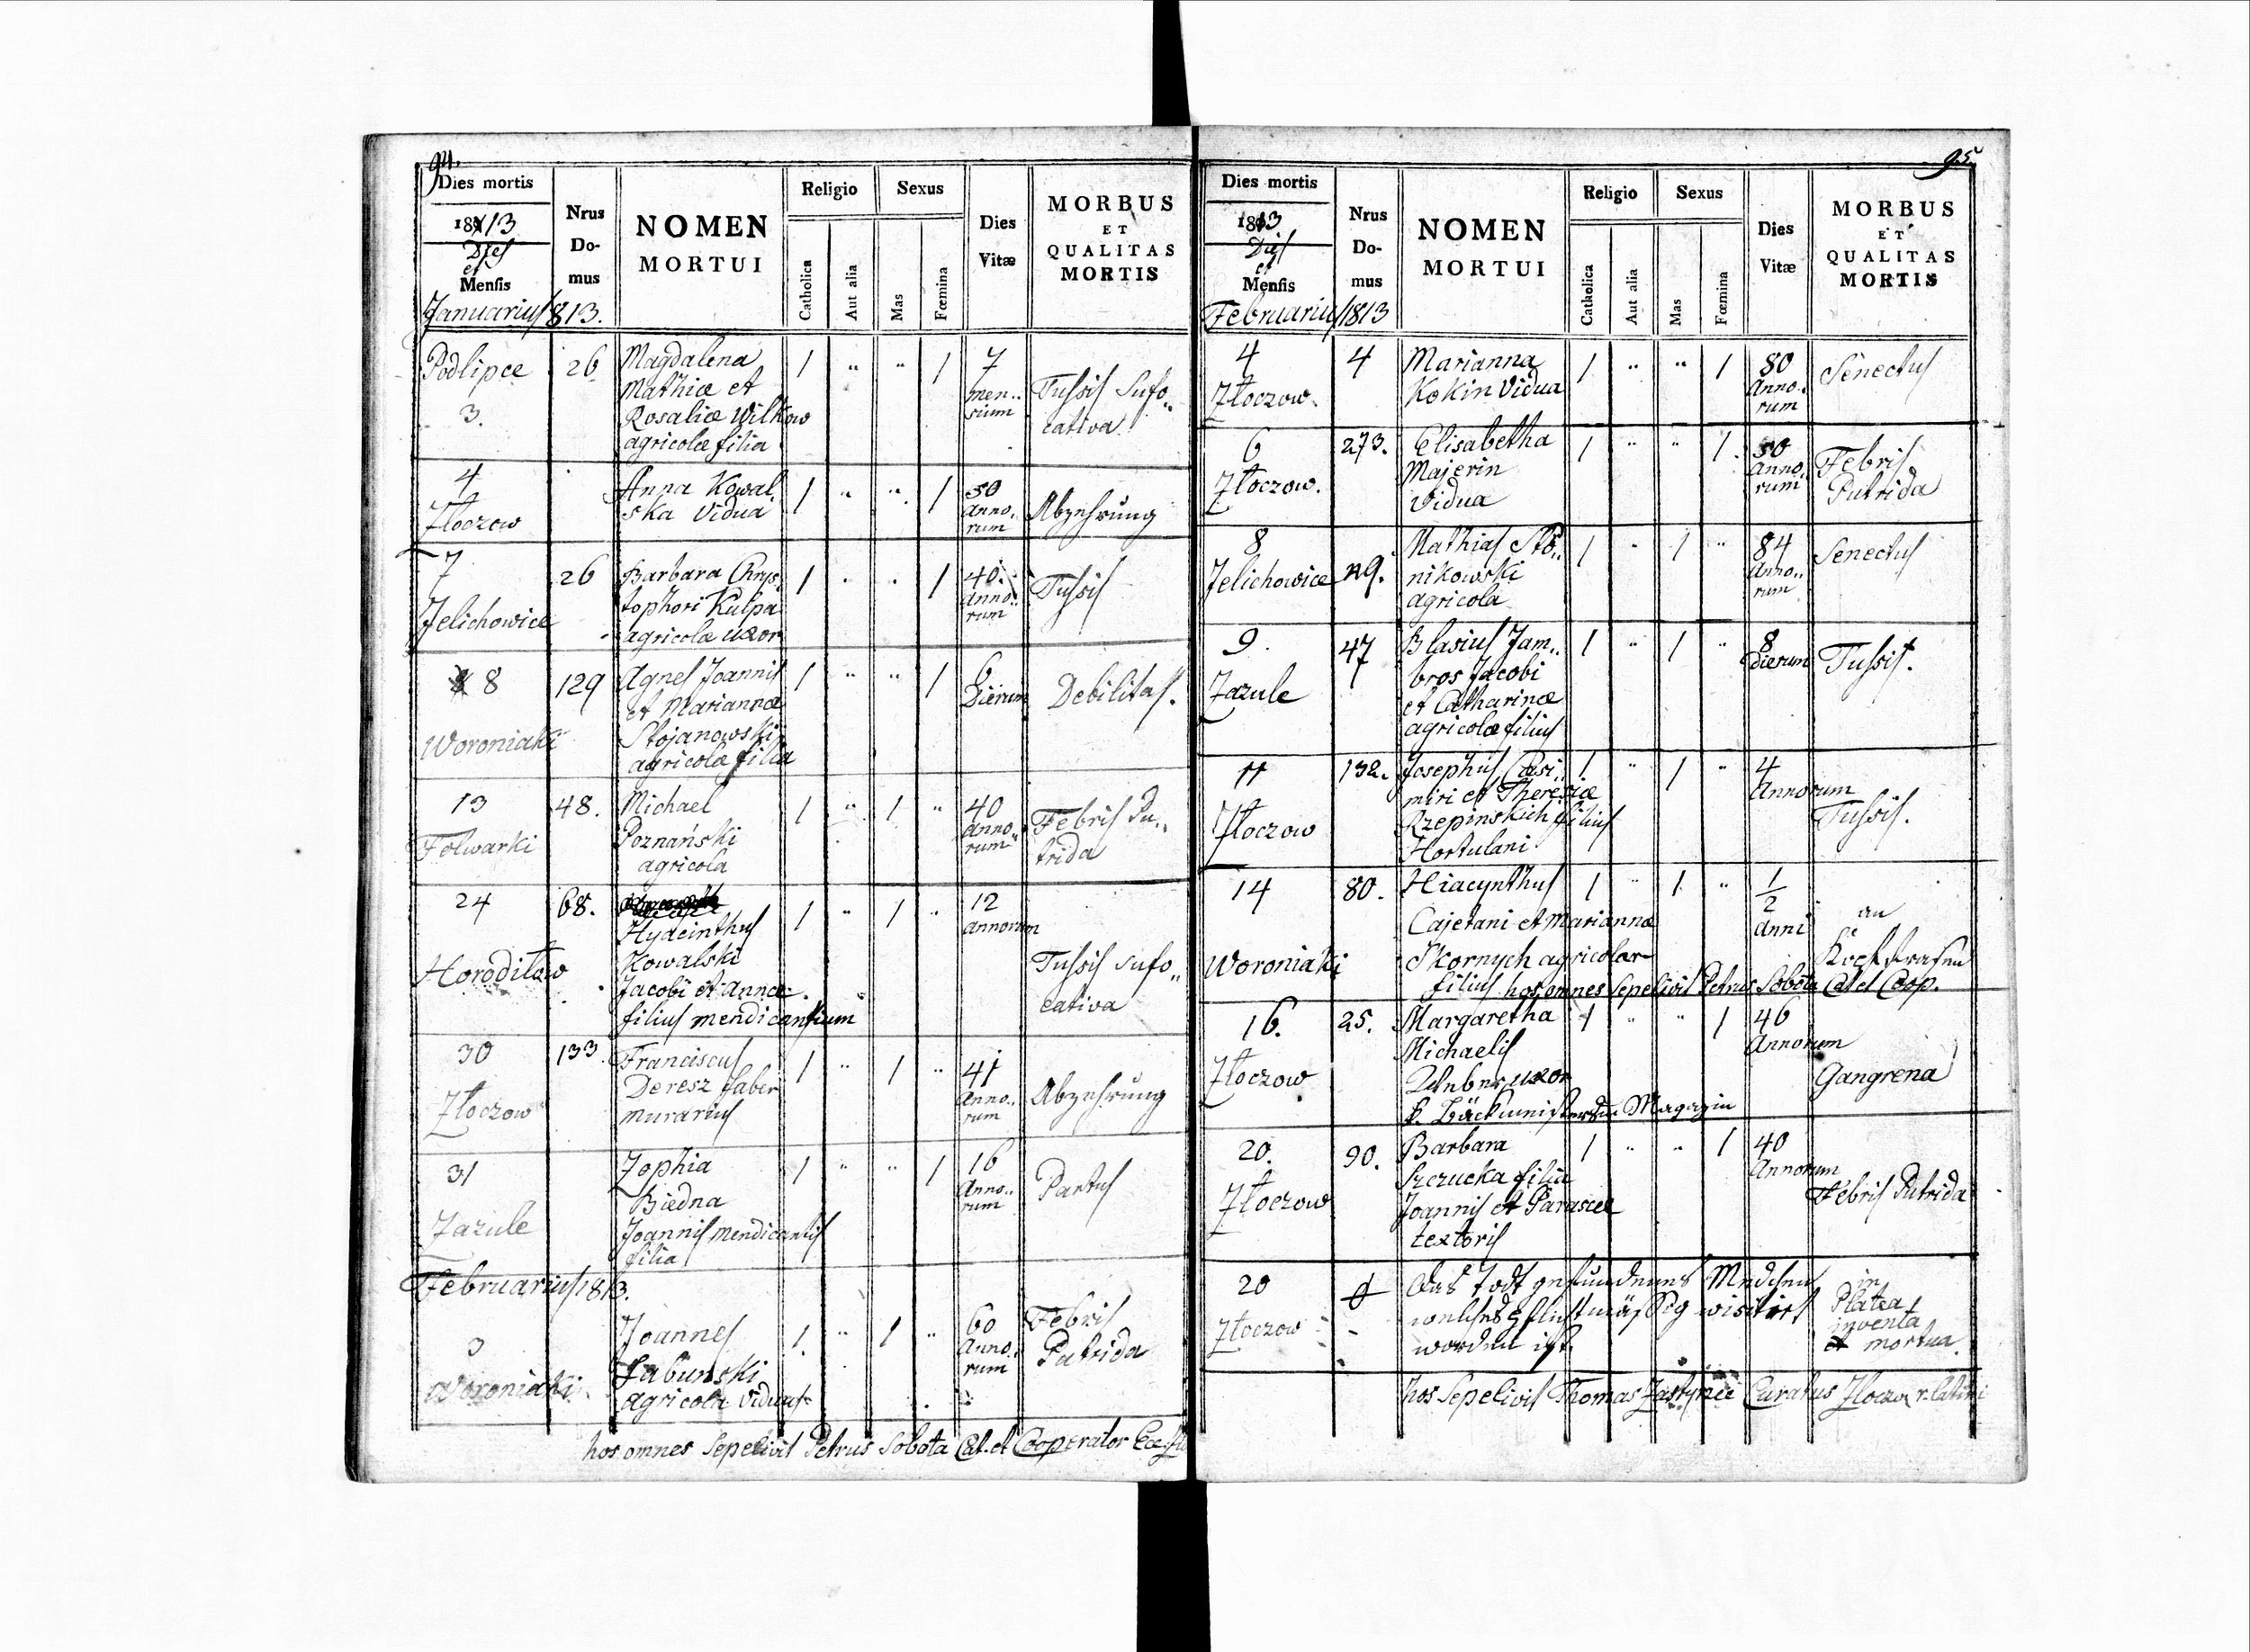 94.
Dies mortis
1813
Dies
et
Mensis
Januarius 813.
Nrus
Do-
mus
NOMEN
MORTUI
Religio
Catholica
Aut alia
Sexus
Mas
Fœmina
Dies
Vitæ
MORBUS
ET
QUALITAS
MORTIS
Podlipce
3.
26
Magdalena
Mathiæ et
Rosaliæ Wilkow
agricolæ filia
1 " " 1
7
men..
sium
Tussis Sufo..
cativa
4
Złoczow
Anna Kowal
ska Vidua
1 " " 1
50
Anno.
rum
Abzehrung
7
Jelichowice
26
Barbara Chrys
tophori Kulpa
agricolæ uxor
1 " " 1
40.
Anno..
rum
Tussis
8
Woroniaki
129
Agnes Joannis
et Mariannæ
Stojanowski
agricolæ filia
1 " " 1
6
Dierum
Debilitas.
13
Folwarki
48.
Michael
Poznański
agricola
1 " 1 "
40
Anno..
rum
Febris Pu..
trida
24
Horodiłow
68.
Hyacinthus
Kowalski
Jacobi et Annæ
filius mendicantium
1 " 1 "
12
annorum
Tussis sufo..
cativa
30
Złoczow
133.
Franciscus
Deresz faber
murarius
1 " 1 "
41
Anno..
rum
Abzehrung
31
Zazule
Zophia
Biedna
Joannis mendicantis
filia
1 " " 1
16
Anno..
rum
Partus
Februarius 1813.
3
Woroniaki
Joannes
Łabunski
agricola viduus
1 " 1 "
60
Anno.
rum
Febris
Putrida
hos omnes Sepelivit Petrus Sobota Cat. et Cooperator
95.
Dies mortis
1813
Dies
et
Mensis
Februarius 1813
Nrus
Do-
mus
NOMEN
MORTUI
Religio
Catholica
Aut alia
Sexus
Mas
Fœmina
Dies
Vitæ
MORBUS
ET
QUALITAS
MORTIS
4
Złoczow.
4
Marianna
Kokin Vidua
1 " " 1
80
Anno.
rum
Senectus
6
Złoczow.
273.
Elisabetha
Majerin
Vidua
1 " " 1
50
Anno.
rum
Febris
Putrida
8
Jelichowice
Mathias Sto..
nikowski
agricola
1 " 1 "
84
Anno..
rum
Senectus
9.
Zazule
47
Blasius Jam..
bros Jacobi
et Catharinæ
agricolæ filius
1 " 1 "
8
Dierum
Tussis.
11
Złoczow
132.
Josephus Casi..
miri et Theresiæ
Rzepinskich filius
Hortulani
1 " 1 "
4
Annorum
Tussis.
14
Woroniaki
80.
Hiacynthus
Cajetani et Mariannæ
Skornych agricolar
filius hos omnes Sepelivit Petrus Sobota Cat et Coop.
1 " 1 "
1/2
Anni
an
16.
Złoczow
25.
Margaretha
Michaelis
uxor
Bäckmeister Magazin
1 " " 1
46
Annorum
Gangrena
20.
Złoczow
90.
Barbara
Szczucka filia
Joannis et Parascæ
textoris
1 " " 1
40
Annorum
Febris Putrida
20
Złoczow
Das todt gefundenes Mädchen
welches visitirt
worden ist.
in
Platea
inventa
mortua.
hos Sepelivit Thomas Curatus Złoczov r. latini